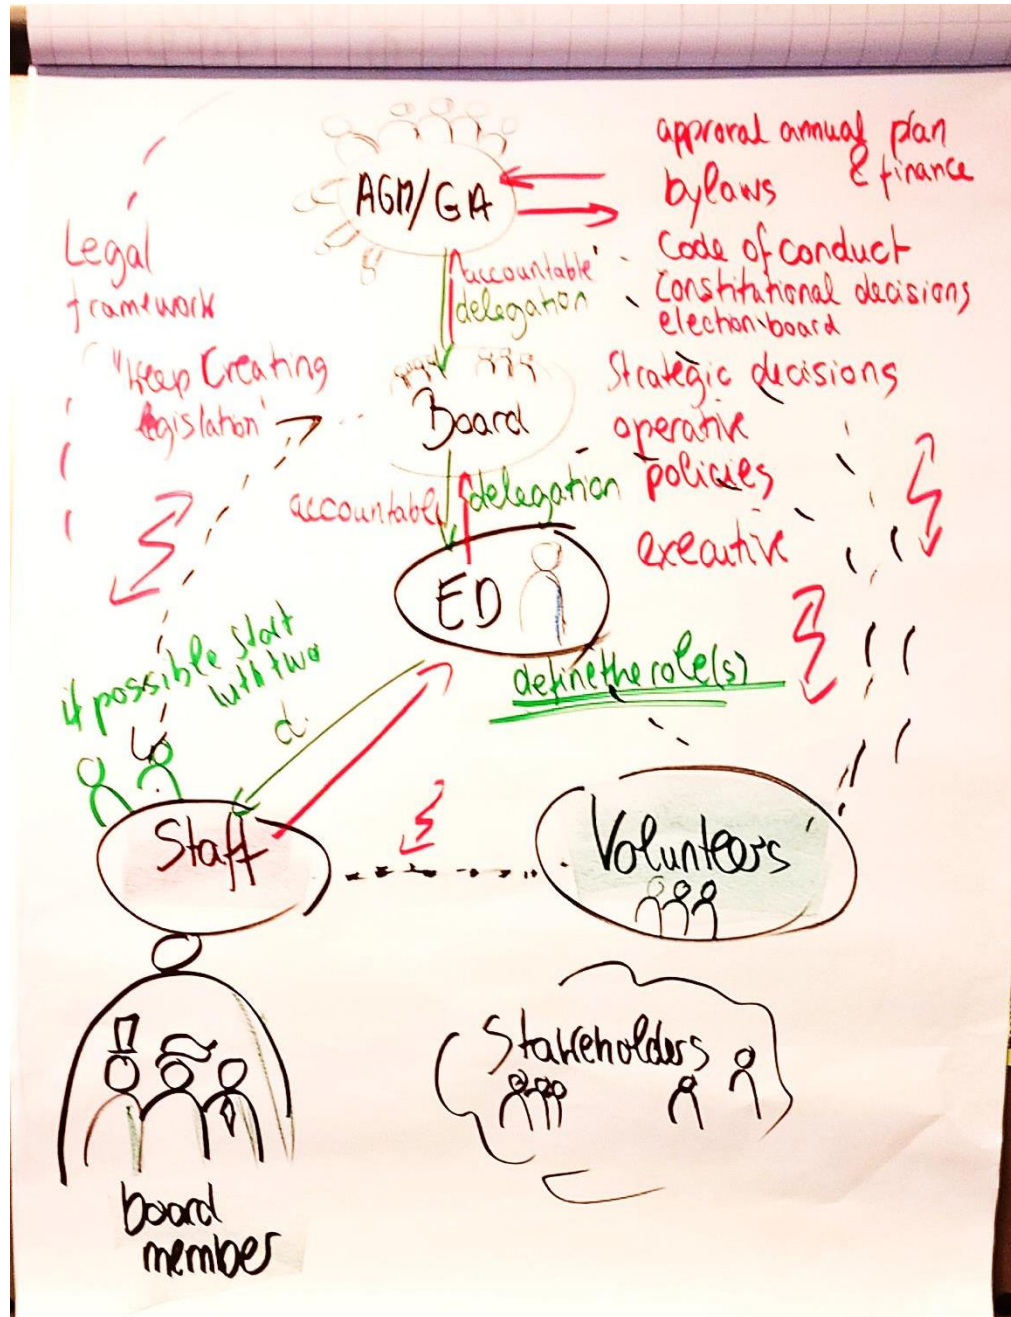 AGM/GA
approval annual plan
& finance
bylaws
Code of conduct
Constitutional decisions
election board
Legal
framework
"accountable"
delegation
"keep Creating
legislation"
Board
Strategic decisions
operative
policies
executive
accountable
delegation
ED
define the role(s)
if possible start
with two
d.
Staff
Volunteers
Stakeholders
board
member